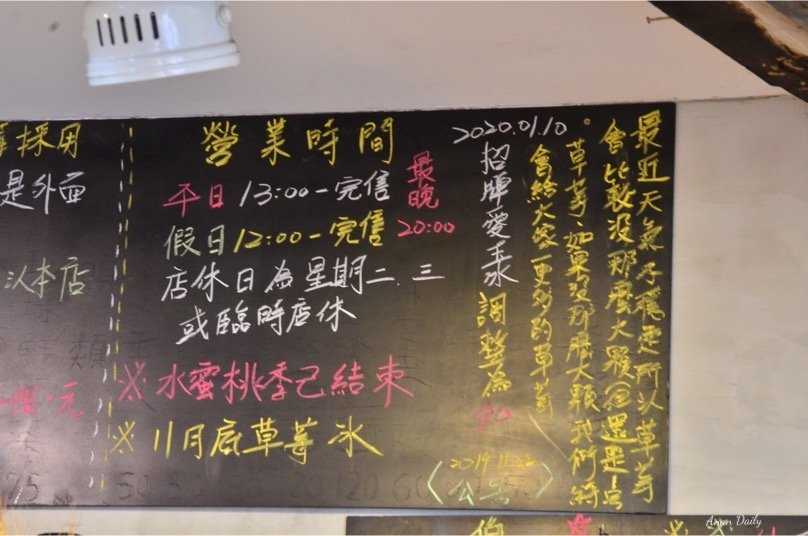 採用
是外面
以本店
元
營業時間
平日 13:00-完售
假日 12:00-完售
最晚
20:00
店休日為星期二.三
或臨時店休
※水蜜桃季已結束
※11月底草莓冰
2020.01.10
招牌愛玉冰 調整為 90
〈2019.11.22
公告〉
最近天氣不穩定所以草莓
會比較沒那麼大顆(但還是
草莓,如果沒那麼大顆我們將
會給大家更多的草莓
Anyun Daily